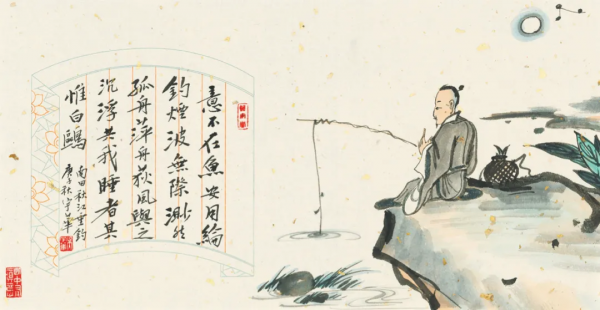 意不在魚安用綸
釣煙波無際渺然
孤舟萍舟荻風與之
沉浮共我睡者其
惟白鷗
南田秋江垂釣
庚子秋宇華